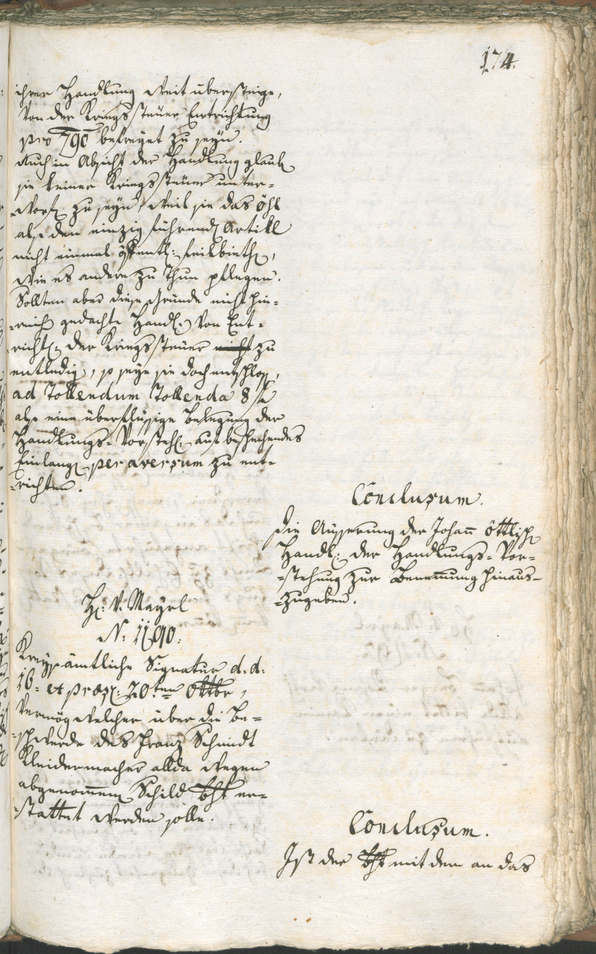 174.
ihrer Handlung weit übersteige,
von der Kriegssteuer Entrichtung
pro 790 befreyet zu seyn.
Auch in Absicht der Handlung glaub
sie keiner Kriegssteuer unter-
worf. zu seyn, weil sie das Öhl
als den einzig führend. Artikl
nicht einmal öffentl: feilbieth.,
wie es andere zu thun pflegen.
Sollten aber diese Gründe nicht hin-
reich. gedachte Handl: von Ent-
richt. der Kriegssteuer nicht zu
entledig., so seye sie doch entschloss.,
ad Tollendum Tollenda 8 f
als eine überflüssige Belegung der
Handlungs-Vorsteh. aus bestehendes
Einlang. per aversum zu ent-
richten.
Conclusum.
Die Äusserung der Johann Öttlisch.
Handl: der Handlungs-Vor-
stehung zur Benennung hinaus-
zugeben.
H: v. Mayrl
N: 1190.
Kreysämtliche Signatur d. d:
16: et præs: 20ten 8ttbr,
vermög welcher über die Be-
schwerde des Franz Schmidt
Kleidermacher allda wegen
abgenommen. Schild bht er-
stattet werden solle.
Conclusum.
Ist der bht mit dem an das